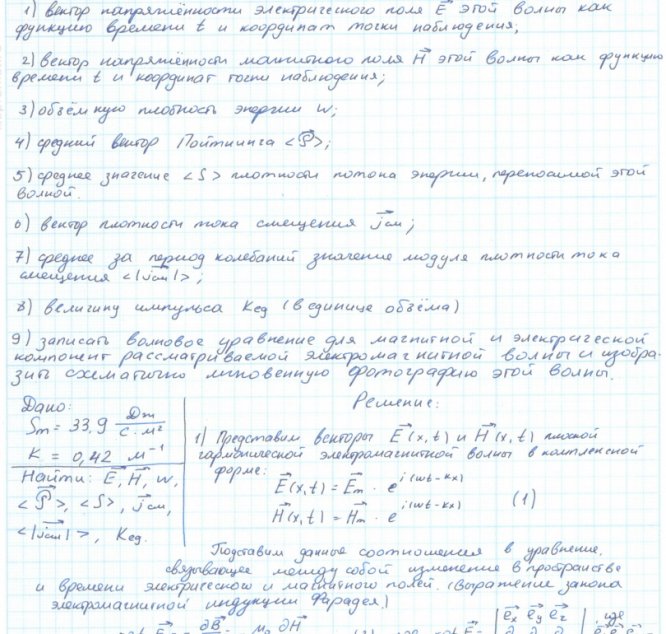 1) вектор напряжённости электрического поля E⃗ этой волны как
функцию времени t и координат точки наблюдения;
2) вектор напряжённости магнитного поля H⃗ этой волны как функцию
времени t и координат точки наблюдения;
3) объёмную плотность энергии w;
4) средний вектор Пойтинга <S⃗>;
5) среднее значение <S> плотности потока энергии, переносимой этой
волной.
6) вектор плотности тока смещения j⃗см;
7) среднее за период колебаний значение модуля плотности тока
смещения <|j⃗см|>;
8) величину импульса Kед (в единице объёма)
9) записать волновое уравнение для магнитной и электрической
компонент рассматриваемой электромагнитной волны и изобра-
зить схематично мгновенную фотографию этой волны.
Дано:
Sm = 33,9 Дж/с·м²
K = 0,42 м⁻¹
Найти: E⃗, H⃗, w,
<S⃗>, <S>, j⃗см,
<|j⃗см|>, Kед.
Решение:
1) Представим векторы E⃗(x,t) и H⃗(x,t) плоской
гармонической электромагнитной волны в комплексной
форме:
E⃗(x,t) = E⃗m · e^i(wt-kx)
H⃗(x,t) = H⃗m · e^i(wt-kx) (1)
Подставим данные соотношения в уравнение,
связывающее между собой изменение в пространстве
и времени электрического и магнитного полей. (Выражение закона
электромагнитной индукции Фарадея)